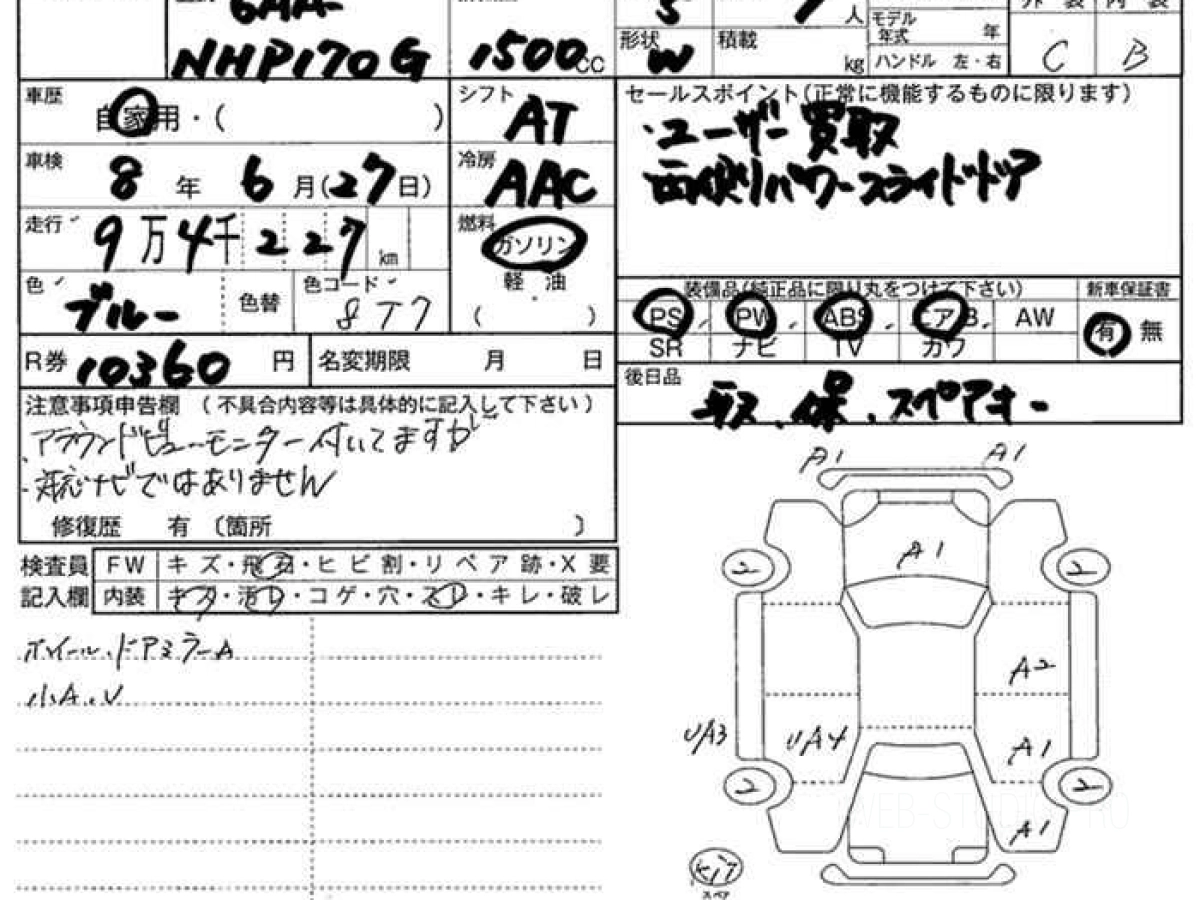 6AA-
5
人
モデル
年式
年
外 装
内 装
NHP170G
1500cc
形状
W
積載
kg
ハンドル 左・右
C
B
車歴
自家用・( )
シフト
AT
セールスポイント(正常に機能するものに限ります)
・ユーザー買取
両側パワースライドドア
車検
8年6月(27日)
冷房
AAC
走行
9万4千227km
燃料
ガソリン
軽 油
( )
色
ブルー
色替
色コード
8T7
装備品(純正品に限り丸をつけて下さい)
新車保証書
PS
PW
ABS
エアB
AW
有 無
SR
ナビ
TV
カワ
R券
10360円
名変期限 月 日
後日品
取、保、スペアキー
注意事項申告欄 (不具合内容等は具体的に記入して下さい)
・アラウンドビューモニター付いてますが
・対応ナビではありません
修復歴 有 〔箇所 〕
検査員
記入欄
FW
キズ・飛石・ヒビ割・リペア跡・X要
内装
キズ・汚レ・コゲ・穴・スレ・キレ・破レ
ホイール、ドアミラーA
小A、U
A1
A1
A1
2
2
A2
UA3
UA4
A1
2
2
A1
キズ
スペア